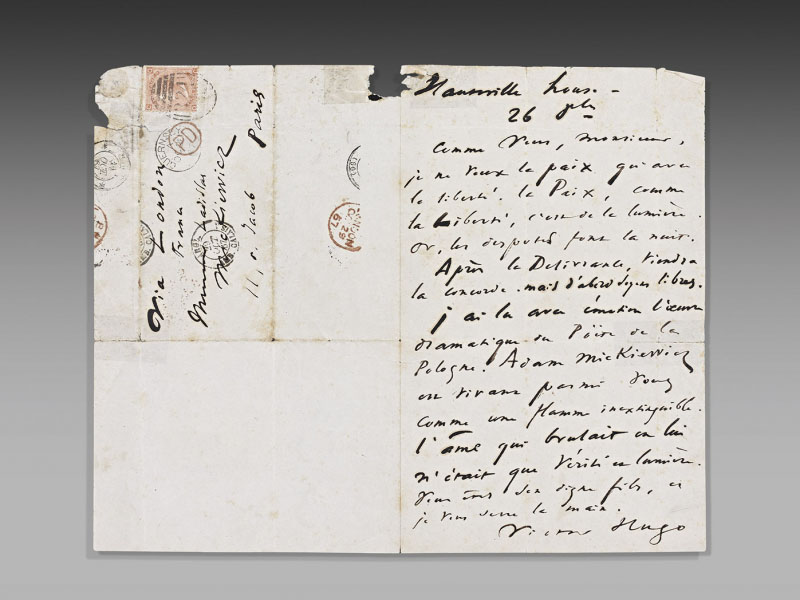 Hauteville house -
26 7bre
Comme vous, monsieur,
je ne veux la paix qu'avec
la liberté. la Paix, comme
la Liberté, c'est de la lumière.
or, les despotes font la nuit.
Après la Délivrance, viendra
la concorde. mais d'abord soyons libres.
j'ai lu avec émotion l'œuvre
dramatique du Poëte de la
Pologne. Adam Mickiewicz
est vivant parmi vous
comme une flamme inextinguible.
l'âme qui brulait en lui
n'était que vérité et lumière.
Vous êtes son digne fils, et
je vous serre la main.
Victor Hugo
Via London
France
Monsieur Ladislas
Mickiewicz
11, r. Jacob
Paris
PD
LONDON
67